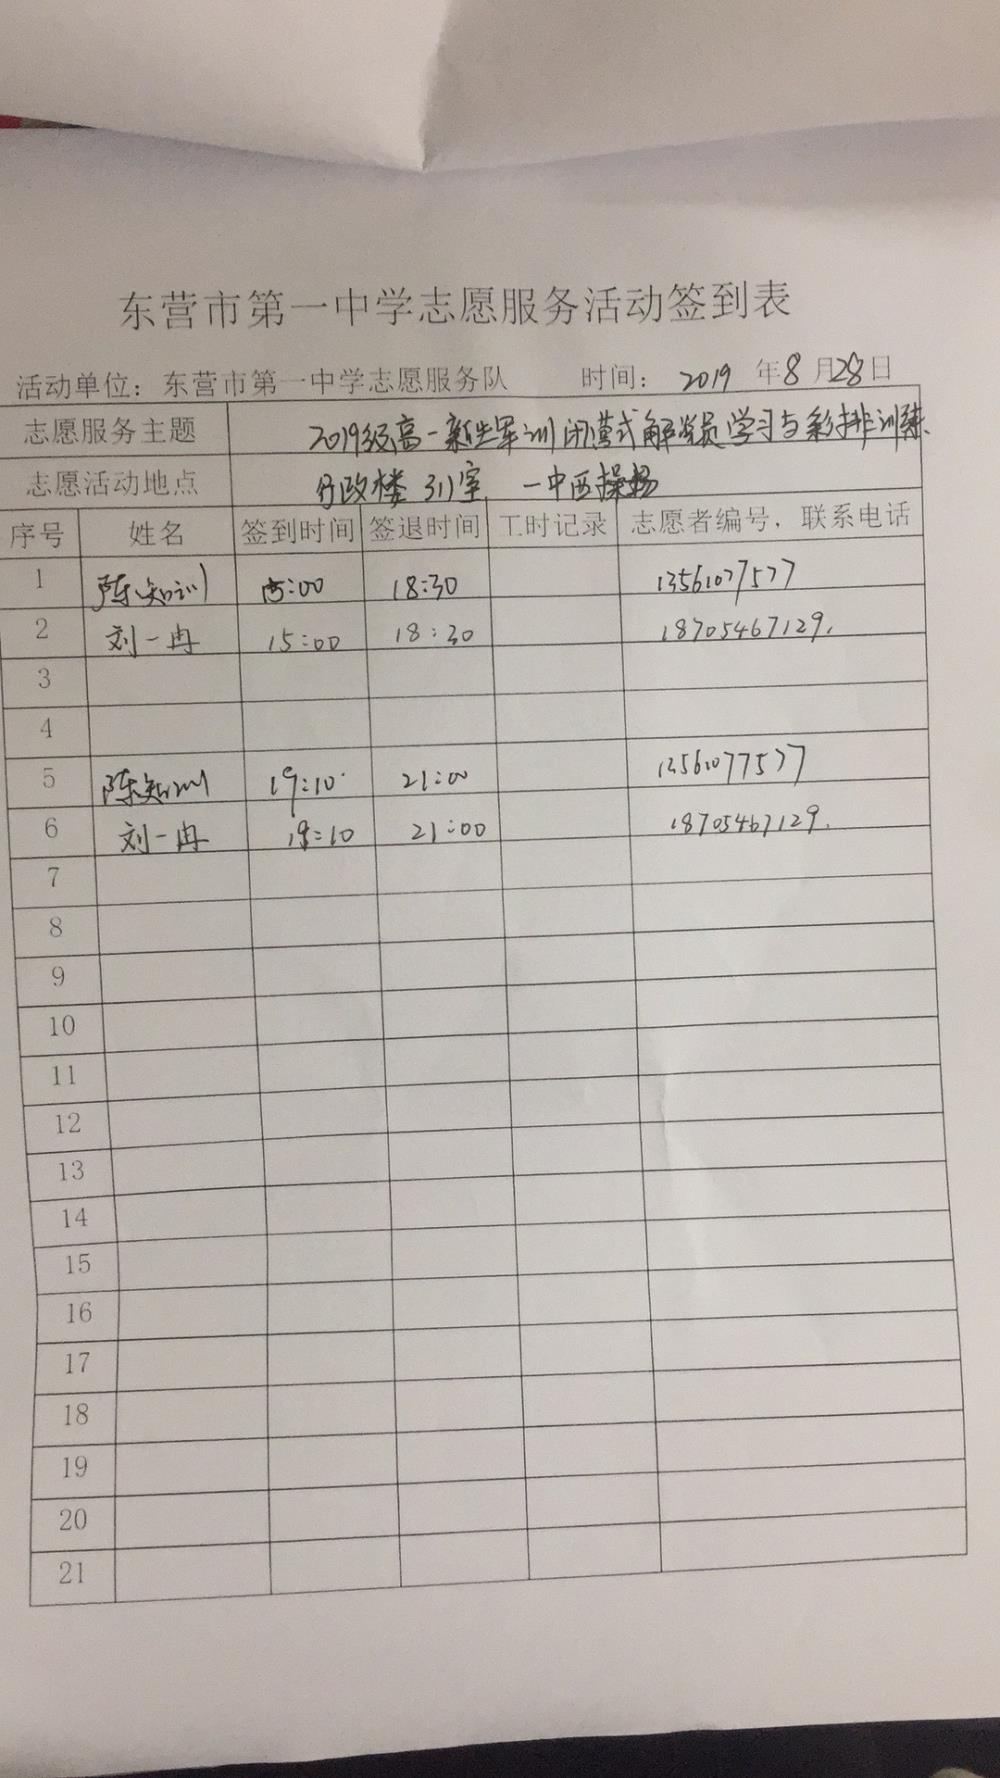 东营市第一中学志愿服务活动签到表
活动单位：东营市第一中学志愿服务队 时间： 2019 年8月28日
志愿服务主题 2019级高一新生军训闭营式解说员学习与彩排训练.
志愿活动地点 行政楼 311室 一中西操场
序号 姓名 签到时间 签退时间 工时记录 志愿者编号，联系电话
1 陈知训 15:00 18:30 13561077577
2 刘一冉 15:00 18:30 18705467129.
3
4
5 陈知训 19:10 21:00 13561077577
6 刘一冉 19:10 21:00 18705467129.
7
8
9
10
11
12
13
14
15
16
17
18
19
20
21